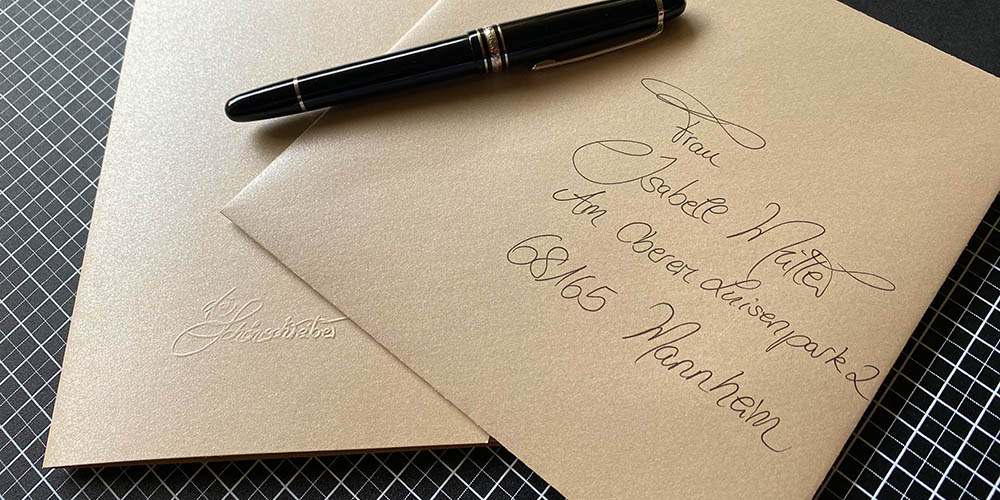 der
Schönschreiber
Frau
Isabell Müller
Am Oberen Luisenpark 2
68165 Mannheim